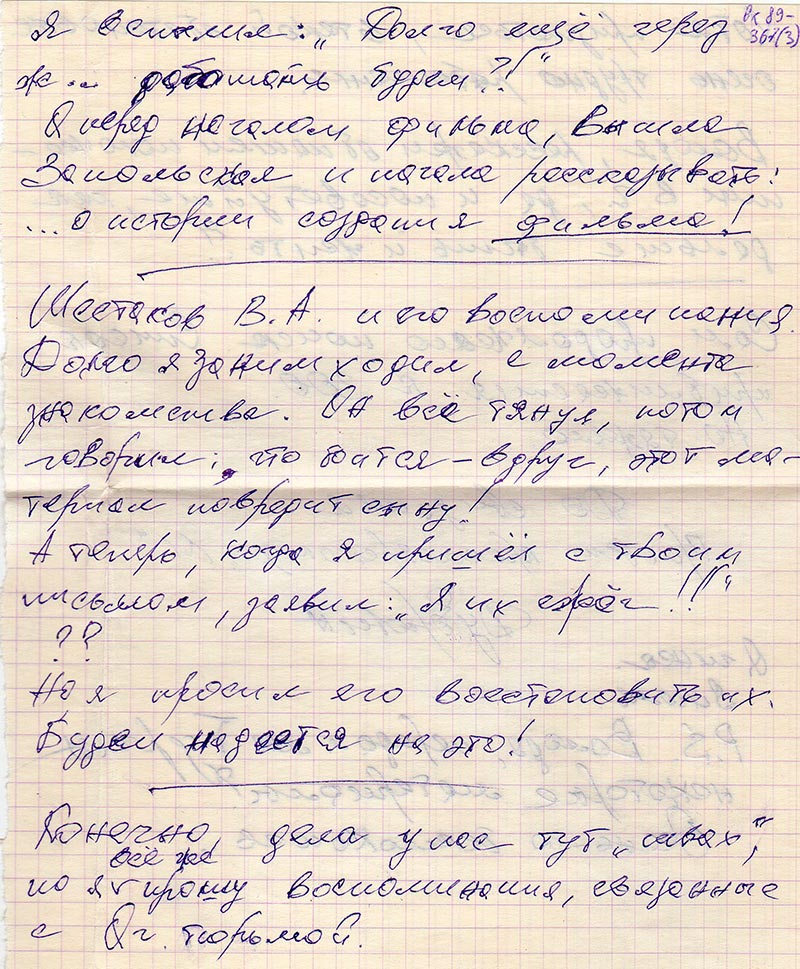 Ок 89-
361(3)
Я вспылил: „Долго ещё через
ж... работать будем?!"
А перед началом фильма, вышла
Запольская и начала рассказывать:
...о истории создания фильма!
Шестаков В.А. и его воспоминания.
Долго я за ним ходил, с момента
знакомства. Он всё тянул, потом
говорил; что боится – вдруг, этот ма-
териал повредит сыну!
А теперь, когда я пришёл с твоим
письмом, заявил: „Я их сжёг!!!"
??
Но я просил его восстановить их.
Будем надеется на это!
Конечно, дела у нас тут „швах",
но я всё же прошу воспоминания, связанные
с тюрьмой.